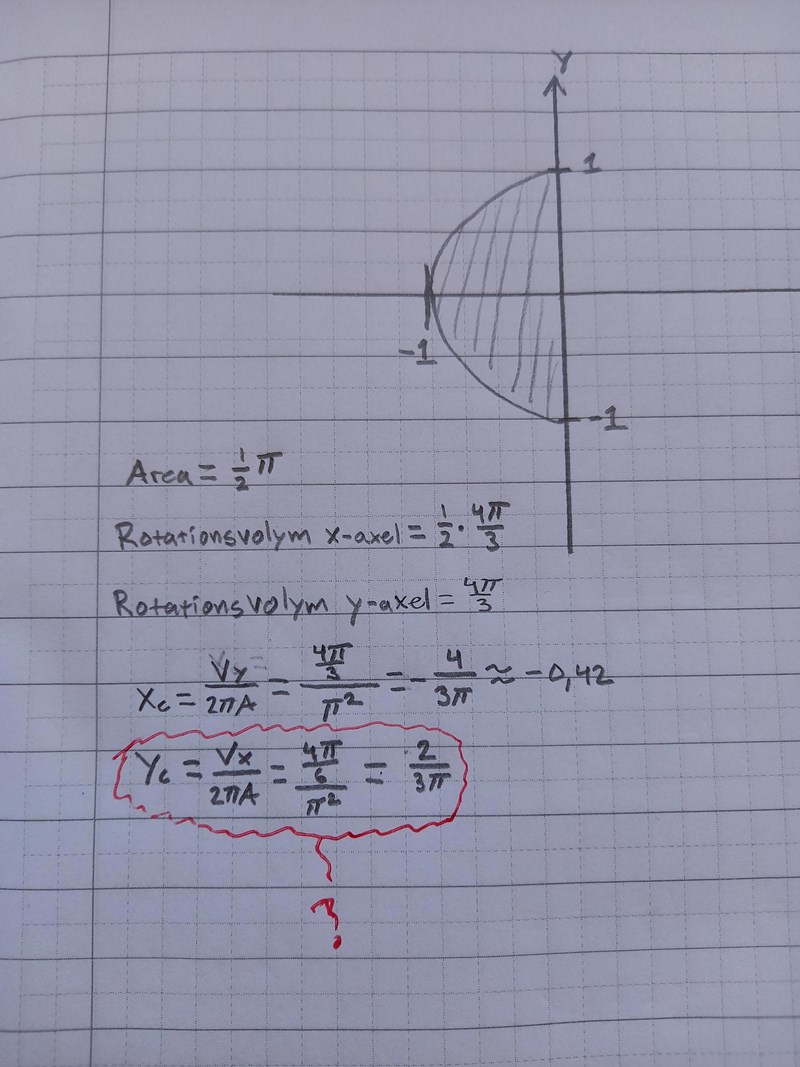 Y
1
-1
-1
Area = 1/2 π
Rotationsvolym x-axel = 1/2 · 4π/3
Rotationsvolym y-axel = 4π/3
Xc = Vy/2πA = (4π/3)/π² = - 4/3π ≈ -0,42
Yc = Vx/2πA = (4π/6)/π² = 2/3π
?